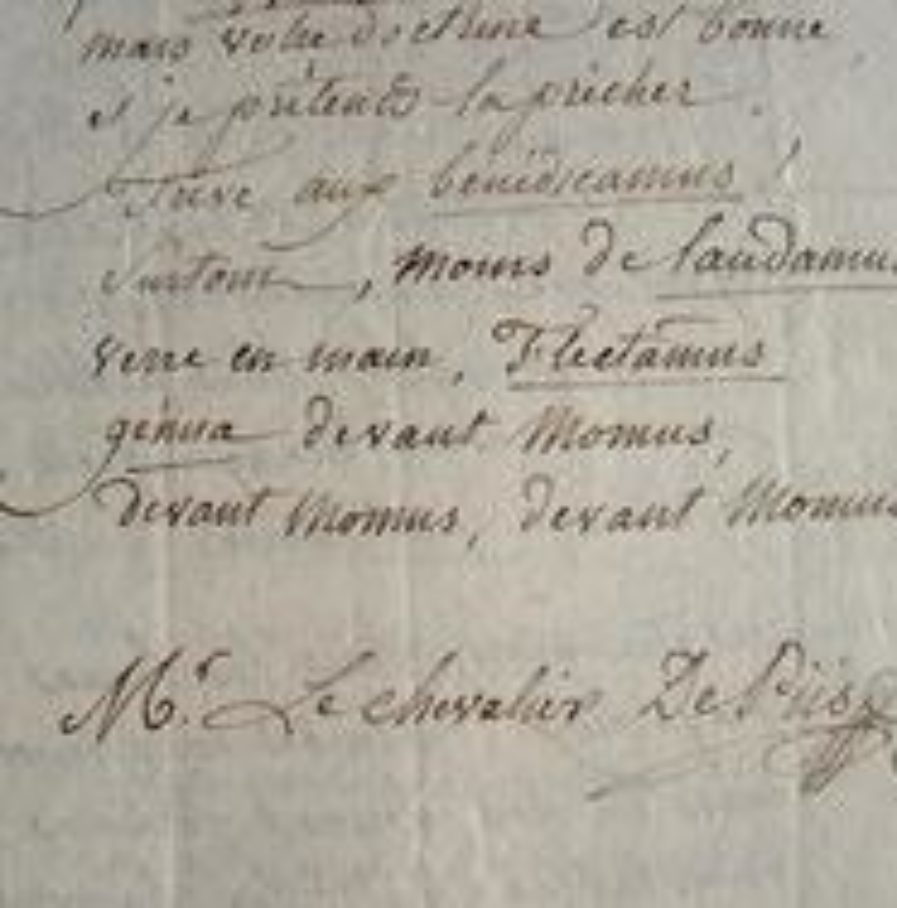 mais votre doctrine est bonne
et je prétends la prêcher.
Trêve aux bénédicamus !
Surtout, moins de laudamus
verre en main, Flectamus
génua devant Momus,
devant Momus, devant Momus
Mr. Le chevalier De Piis